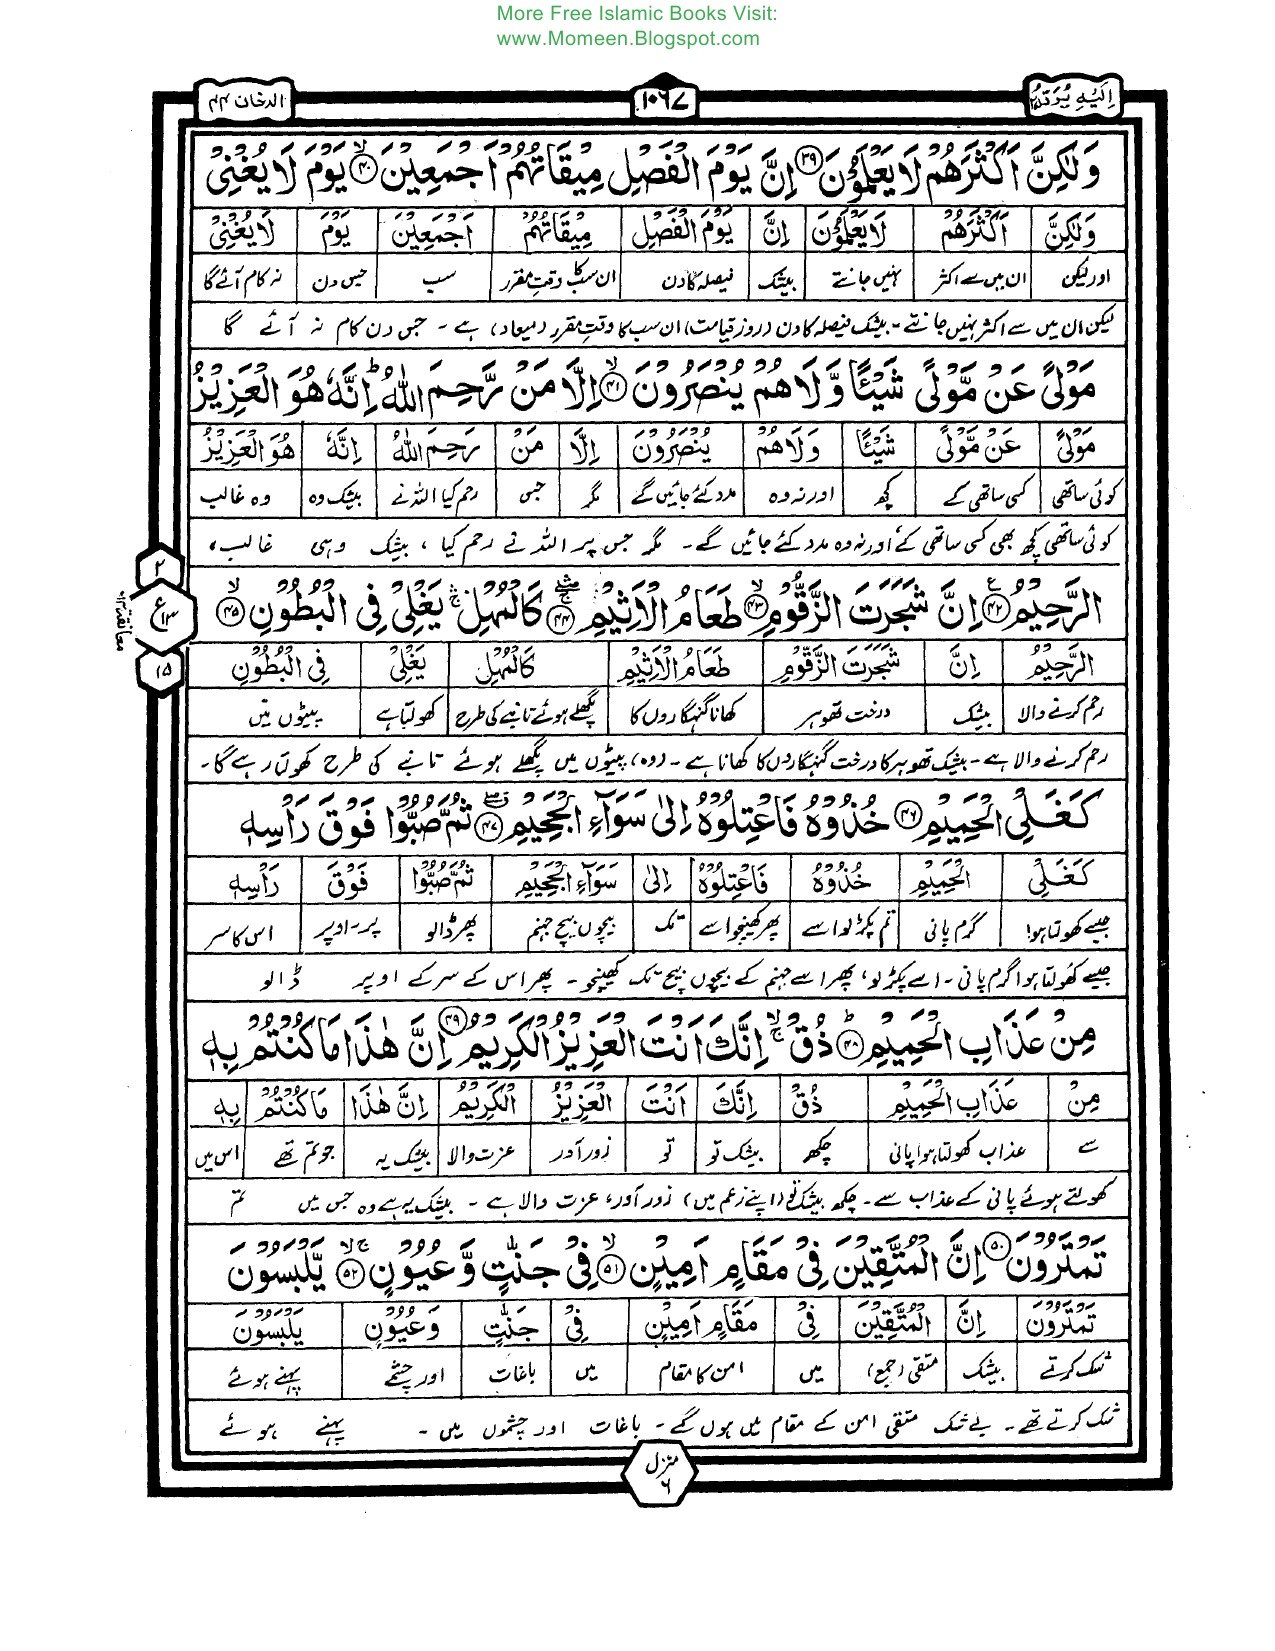 More Free Islamic Books Visit:
www.Momeen.Blogspot.com
اِلَيْهِ يُرَدُّ ۲۵
۱۰۶۷
الدخان ۴۴
وَلٰكِنَّ اَكْثَرَهُمْ لَا يَعْلَمُوْنَ ۳۹ اِنَّ يَوْمَ الْفَصْلِ مِيْقَاتُهُمْ اَجْمَعِيْنَ ۴۰ يَوْمَ لَا يُغْنِىْ
وَلٰكِنَّ اَكْثَرَهُمْ لَا يَعْلَمُوْنَ اِنَّ يَوْمَ الْفَصْلِ مِيْقَاتُهُمْ اَجْمَعِيْنَ يَوْمَ لَا يُغْنِىْ
اور لیکن ان میں سے اکثر نہیں جانتے بیشک فیصلہ کا دن ان سب کا وقت مقرر سب جس دن نہ کام آئے گا
لیکن ان میں سے اکثر نہیں جانتے۔ بیشک فیصلہ کا دن (روز قیامت) ان سب کا وقت مقرر (میعاد) ہے۔ جس دن کام نہ آئے گا
مَوْلًى عَنْ مَّوْلًى شَيْئًا وَّلَا هُمْ يُنْصَرُوْنَ ۴۱ اِلَّا مَنْ رَّحِمَ اللّٰهُ اِنَّهٗ هُوَ الْعَزِيْزُ
مَوْلًى عَنْ مَّوْلًى شَيْئًا وَلَا هُمْ يُنْصَرُوْنَ اِلَّا مَنْ رَحِمَ اللّٰهُ اِنَّهٗ هُوَ الْعَزِيْزُ
کوئی ساتھی کسی ساتھی کے کچھ اور نہ وہ مدد کئے جائیں گے مگر جس رحم کیا اللہ نے بیشک وہ وہ غالب
کوئی ساتھی کچھ بھی کسی ساتھی کے اور نہ وہ مدد کئے جائیں گے۔ مگر جس پر اللہ نے رحم کیا، بیشک وہی غالب،
الرَّحِيْمُ ۴۲ اِنَّ شَجَرَتَ الزَّقُّوْمِ ۴۳ طَعَامُ الْاَثِيْمِ ۴۴ كَالْمُهْلِ يَغْلِىْ فِى الْبُطُوْنِ ۴۵
الرَّحِيْمُ اِنَّ شَجَرَتَ الزَّقُّوْمِ طَعَامُ الْاَثِيْمِ كَالْمُهْلِ يَغْلِىْ فِى الْبُطُوْنِ
رحم کرنے والا بیشک درخت تھوہر کھانا گنہگاروں کا پگھلے ہوئے تانبے کی طرح کھولتا ہے پیٹوں میں
رحم کرنے والا ہے۔ بیشک تھوہر کا درخت گنہگاروں کا کھانا ہے۔ (وہ) پیٹوں میں پگھلے ہوئے تانبے کی طرح کھولتا رہے گا۔
۲
ع ۱۳
۱۵
معانقة ۱۳
كَغَلْىِ الْحَمِيْمِ ۴۶ خُذُوْهُ فَاعْتِلُوْهُ اِلٰى سَوَآءِ الْجَحِيْمِ ۴۷ ثُمَّ صُبُّوْا فَوْقَ رَاْسِهٖ
كَغَلْىِ الْحَمِيْمِ خُذُوْهُ فَاعْتِلُوْهُ اِلٰى سَوَآءِ الْجَحِيْمِ ثُمَّ صُبُّوْا فَوْقَ رَاْسِهٖ
جیسے کھولتا ہوا گرم پانی تم پکڑ لو اسے پھر کھینچو اسے تک بیچوں بیچ جہنم پھر ڈالو پر۔ اوپر اس کا سر
جیسے کھولتا ہوا گرم پانی۔ اسے پکڑ لو، پھر اسے جہنم کے بیچوں بیچ تک کھینچو۔ پھر اس کے سر کے اوپر ڈالو
مِنْ عَذَابِ الْحَمِيْمِ ۴۸ ذُقْ اِنَّكَ اَنْتَ الْعَزِيْزُ الْكَرِيْمُ ۴۹ اِنَّ هٰذَا مَا كُنْتُمْ بِهٖ
مِنْ عَذَابِ الْحَمِيْمِ ذُقْ اِنَّكَ اَنْتَ الْعَزِيْزُ الْكَرِيْمُ اِنَّ هٰذَا مَا كُنْتُمْ بِهٖ
سے عذاب کھولتا ہوا پانی چکھ بیشک تو تو زور آور عزت والا بیشک یہ جو تم تھے اس میں
کھولتے ہوئے پانی کے عذاب سے۔ چکھ بیشک تو (اپنے زعم میں) زور آور، عزت والا ہے۔ بیشک یہ ہے وہ جس میں تم
تَمْتَرُوْنَ ۵۰ اِنَّ الْمُتَّقِيْنَ فِىْ مَقَامٍ اَمِيْنٍ ۵۱ فِىْ جَنّٰتٍ وَّعُيُوْنٍ ۵۲ يَّلْبَسُوْنَ
تَمْتَرُوْنَ اِنَّ الْمُتَّقِيْنَ فِىْ مَقَامٍ اَمِيْنٍ فِىْ جَنّٰتٍ وَعُيُوْنٍ يَلْبَسُوْنَ
شک کرتے بیشک متقی (جمع) میں امن کا مقام میں باغات اور چشمے پہنے ہوئے
شک کرتے تھے۔ بے شک متقی امن کے مقام میں ہوں گے۔ باغات اور چشموں میں۔ پہنے ہوئے
منزل ۶